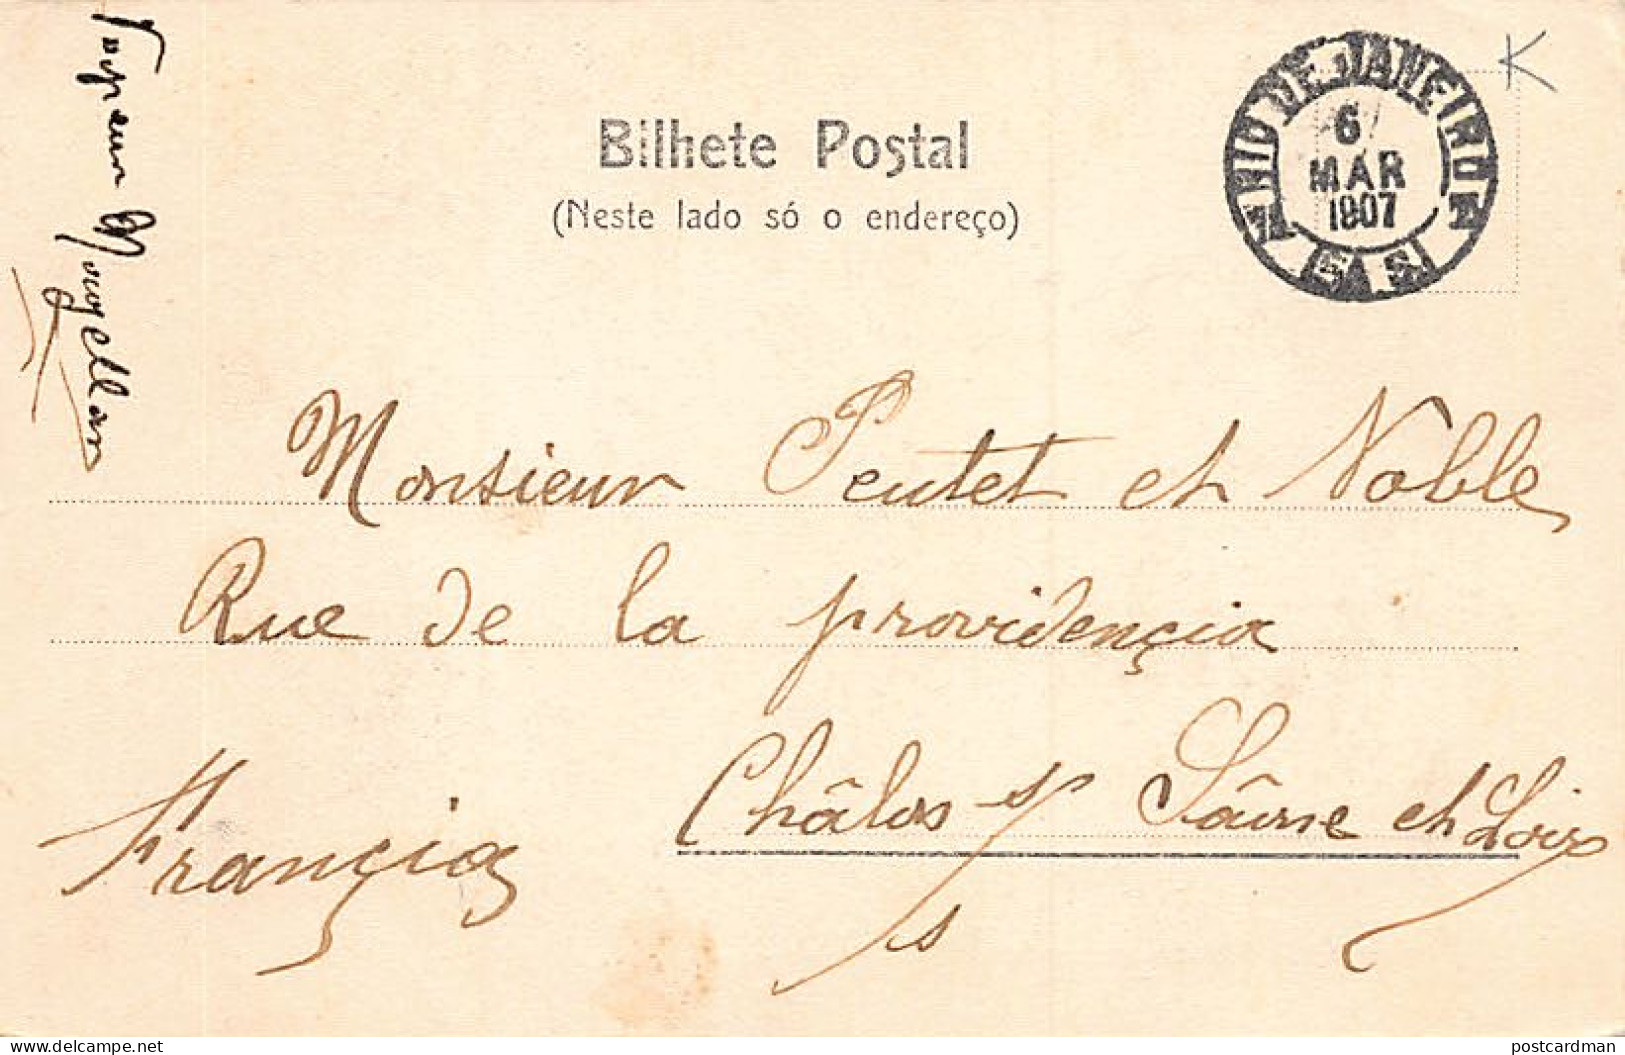 Vapeur Magellan
Bilhete Postal
(Neste lado só o endereço)
RIO DE JANEIRO
6
MAR
1907
Monsieur Peutet et Noble
Rue de la providençia
Châlos s/ Saûne et Loir
s/s
Françia
delcampe.net
postcardman